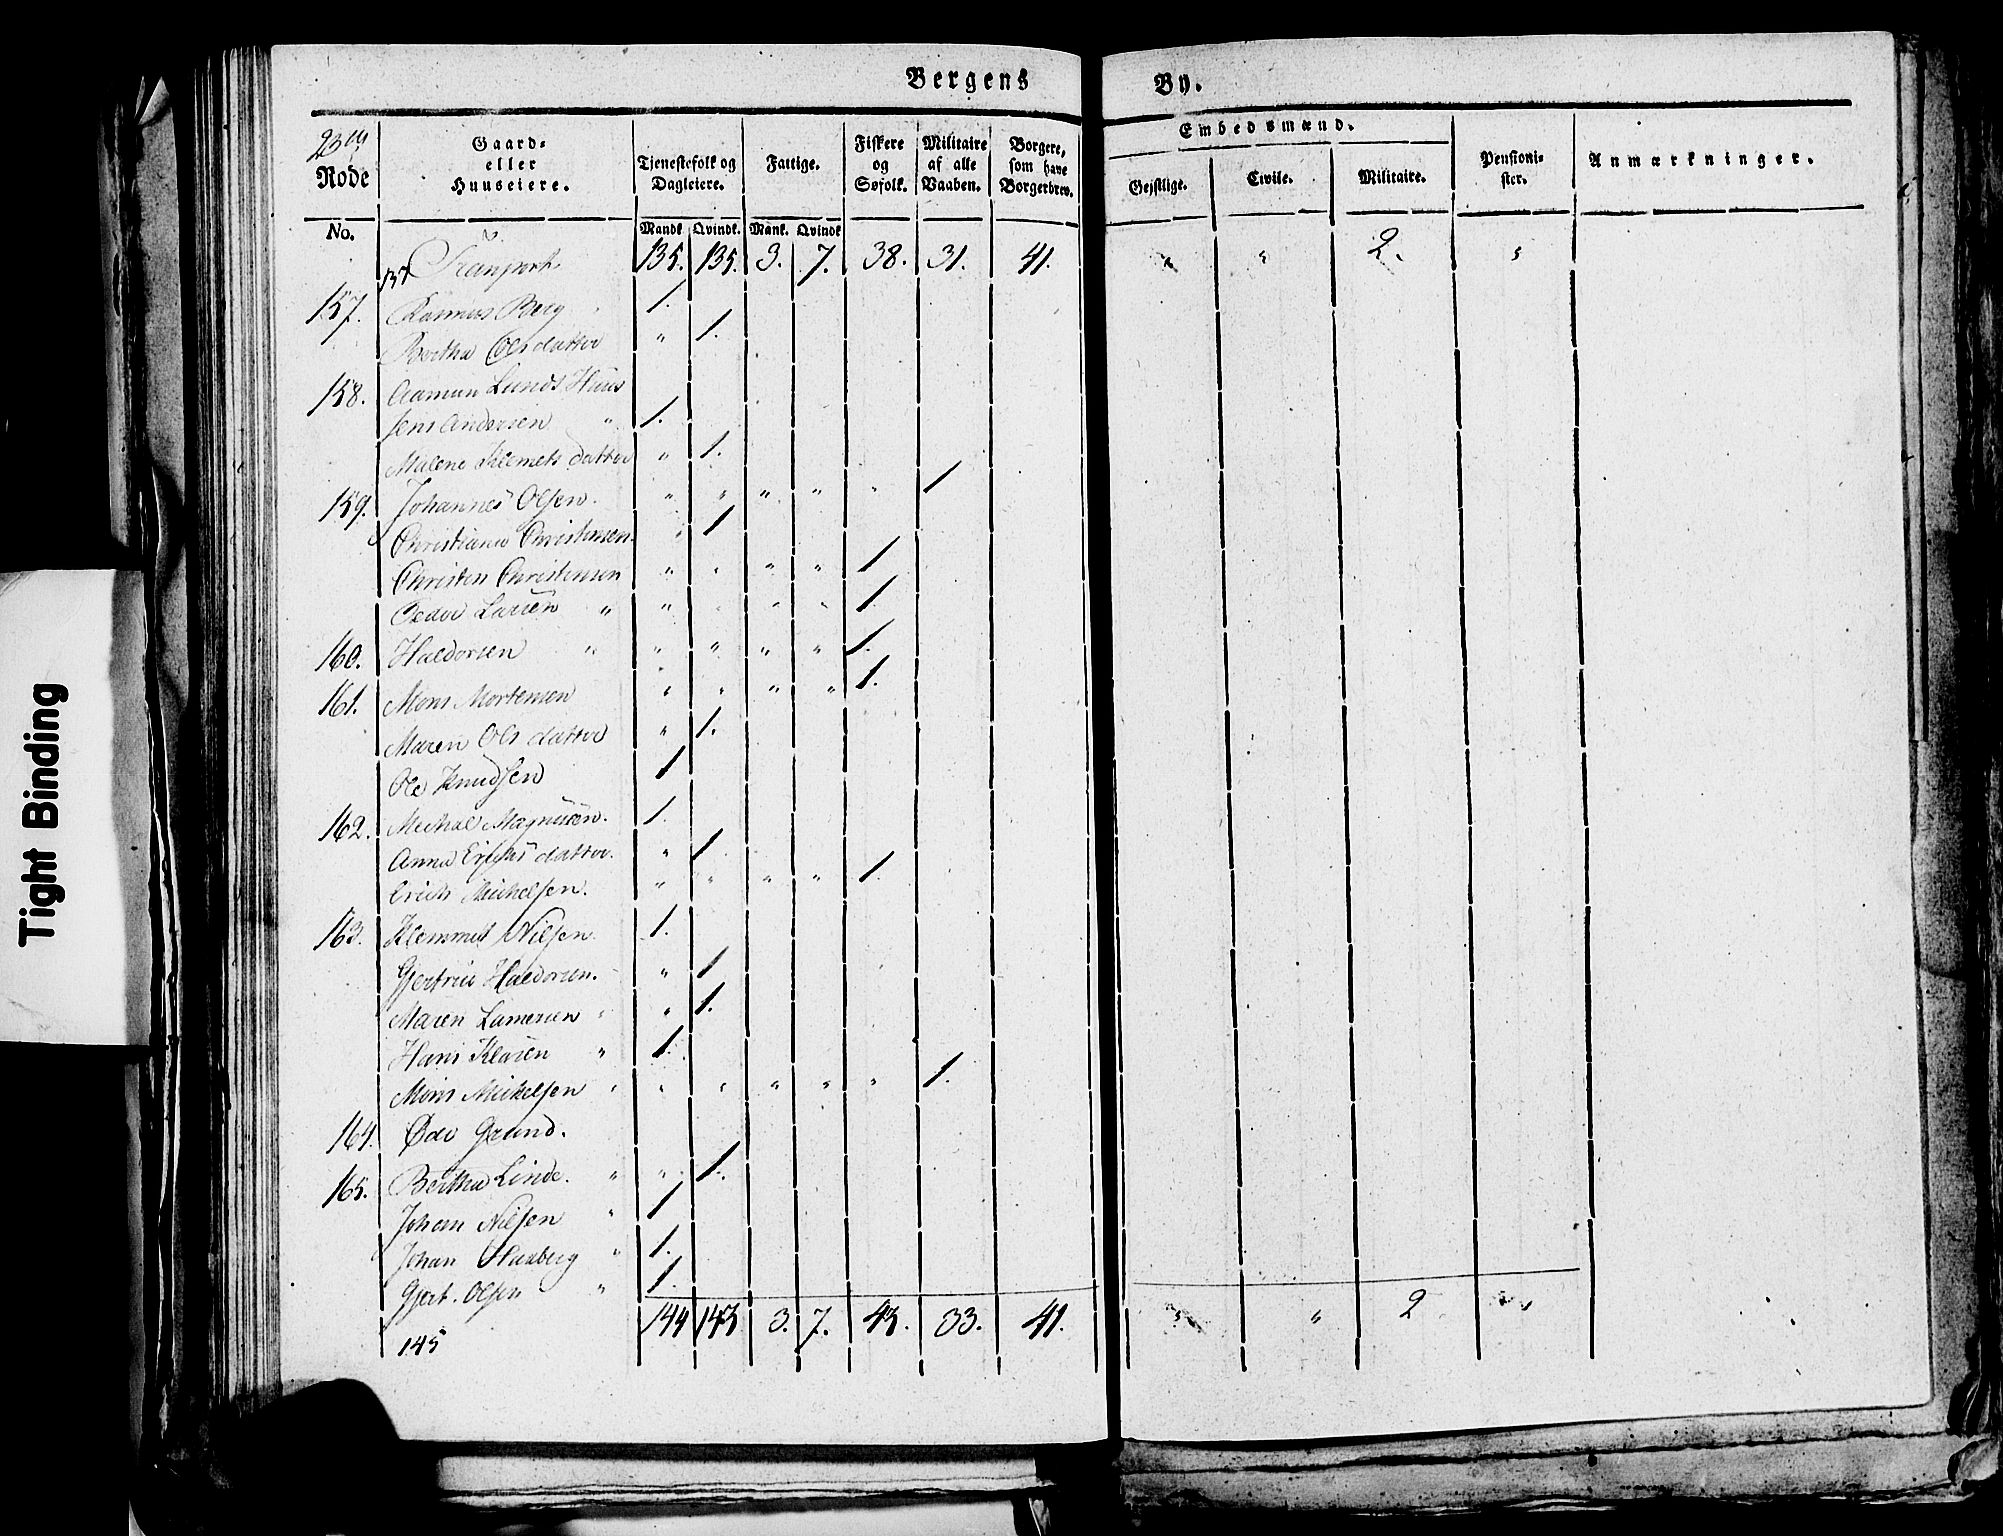 Tight Binding
Bergens By.
23de Rode
Gaard-
eller
Huuseiere.
Tjenestefolk og
Dagleiere.
Fattige.
Fiskere
og
Søfolk.
Militaire
af alle
Vaaben.
Borgere,
som have
Borgerbrev.
Embedsmænd.
Gejstlige. Civile. Militaire.
Pensioni-
ster.
Anmærkninger.
No. Mandk. Qvindk. Mank. Qvindk.
137 Transport 135. 135. 3. 7. 38. 31. 41. " " 2. "
157. Rasmus Berg 1.
Bertha Olsdatter " 1.
158. Aamun Lunds Huus
Jens Andersen " 1.
Malene Klemets datter " 1.
159. Johannes Olsen. " " " " " 1
Christiana Christensen. " 1
Christen Christensen " " " " 1
Peder Larsen " " " " " 1.
160. Haldorsen " " " " " 1.
161. Mons Mortensen " " " " 1.
Maren Ols datter " 1.
Ole Knudsen 1
162. Michal Magnusen. 1.
Anna datter. " 1
Erich Michelsen. " " " " 1.
163. Klemmet Nilsen. 1.
Gjertrue Haldorsen. " 1
Maren Lamersen " " 1.
Hans Klasen " 1.
Mons Michelsen " " " " " " 1.
164. Øde Grund.
165. Bertha Linde. " " 1.
Johan Nilsen " 1
Johan Haxberg " 1.
Gjert. Olsen " 1.
144 143 3. 7. 43. 33. 41. " " 2 "
145